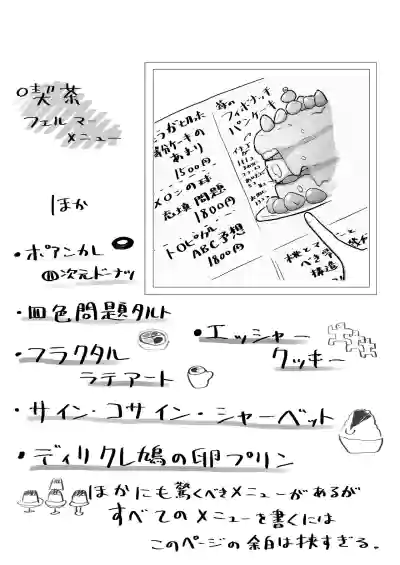 喫茶
フェルマー
メニュー
ほか
苺の
フィボナッチ
パンケーキ
あまり
1500円
メロンの球
充填問題
1800円
トロピカル
ABC予想
1800円
・ポアンカレ
四次元ドーナツ
・四色問題タルト
・フラクタル
ラテアート
・エッシャー
クッキー
・サイン・コサイン・シャーベット
・ディリクレ鳩の卵プリン
ほかにも驚くべきメニューがあるが
すべてのメニューを書くには
このページの余白は狭すぎる。